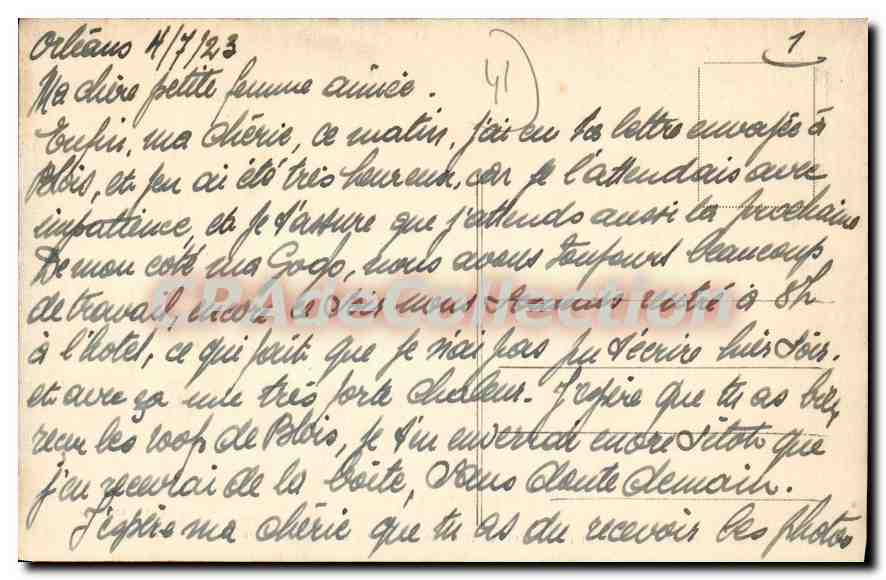 Orléans 4/7/23
1
41
Ma chère petite femme aimée.
Enfin, ma chérie, ce matin, j'ai eu ta lettre envoyée à
Blois, et j'en ai été très heureux, car je l'attendais avec
impatience, et je t'assure que j'attends aussi la prochaine
De mon coté ma Gogo, nous avons toujours beaucoup
de travail, encore ce soir nous sommes rentré à 8h
à l'hotel, ce qui fait que je n'ai pas pu t'écrire hier soir.
et avec ça une très forte chaleur. J'espère que tu as bien
reçu les 100f de Blois, je t'en enverrai encore sitot que
j'en recevrai de la boite, sans doute demain.
J'espère ma chérie que tu as du recevoir les photos
CPADeCollection